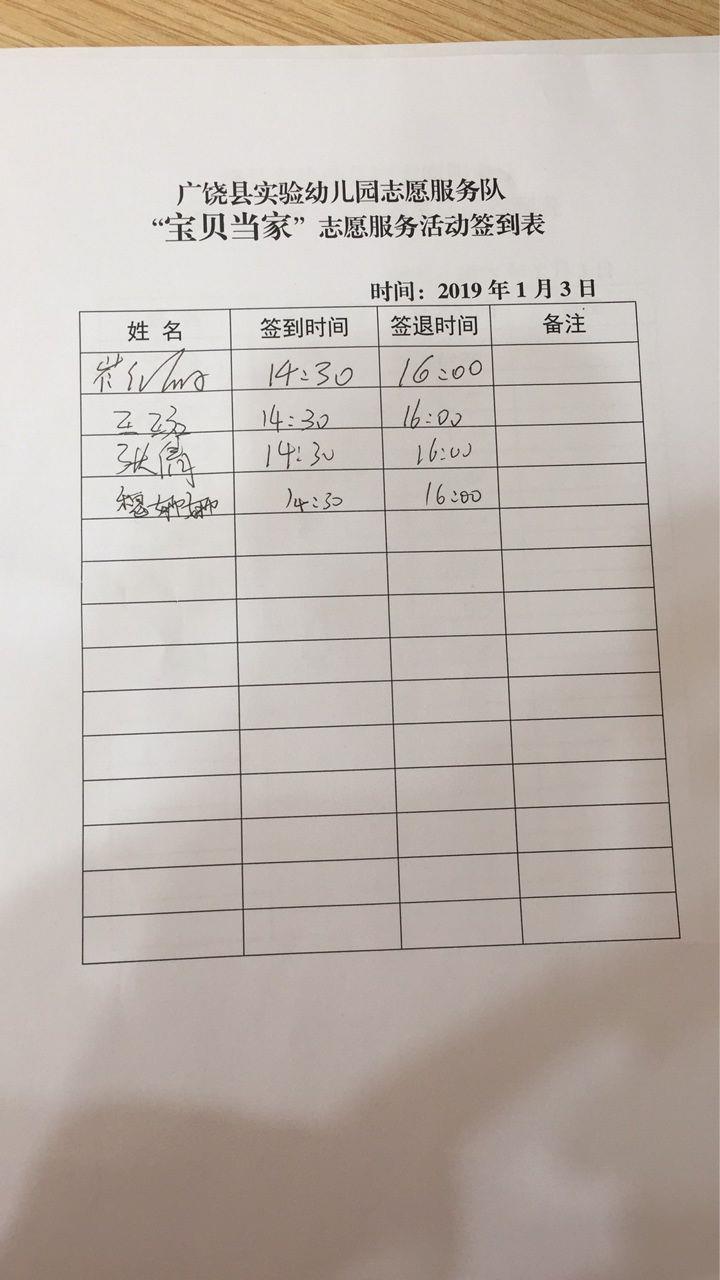 广饶县实验幼儿园志愿服务队
“宝贝当家”志愿服务活动签到表
时间：2019年1月3日
姓 名 签到时间 签退时间 备注
14:30 16:00
14:30 16:00
张 14:30 16:00
穆娜娜 14:30 16:00